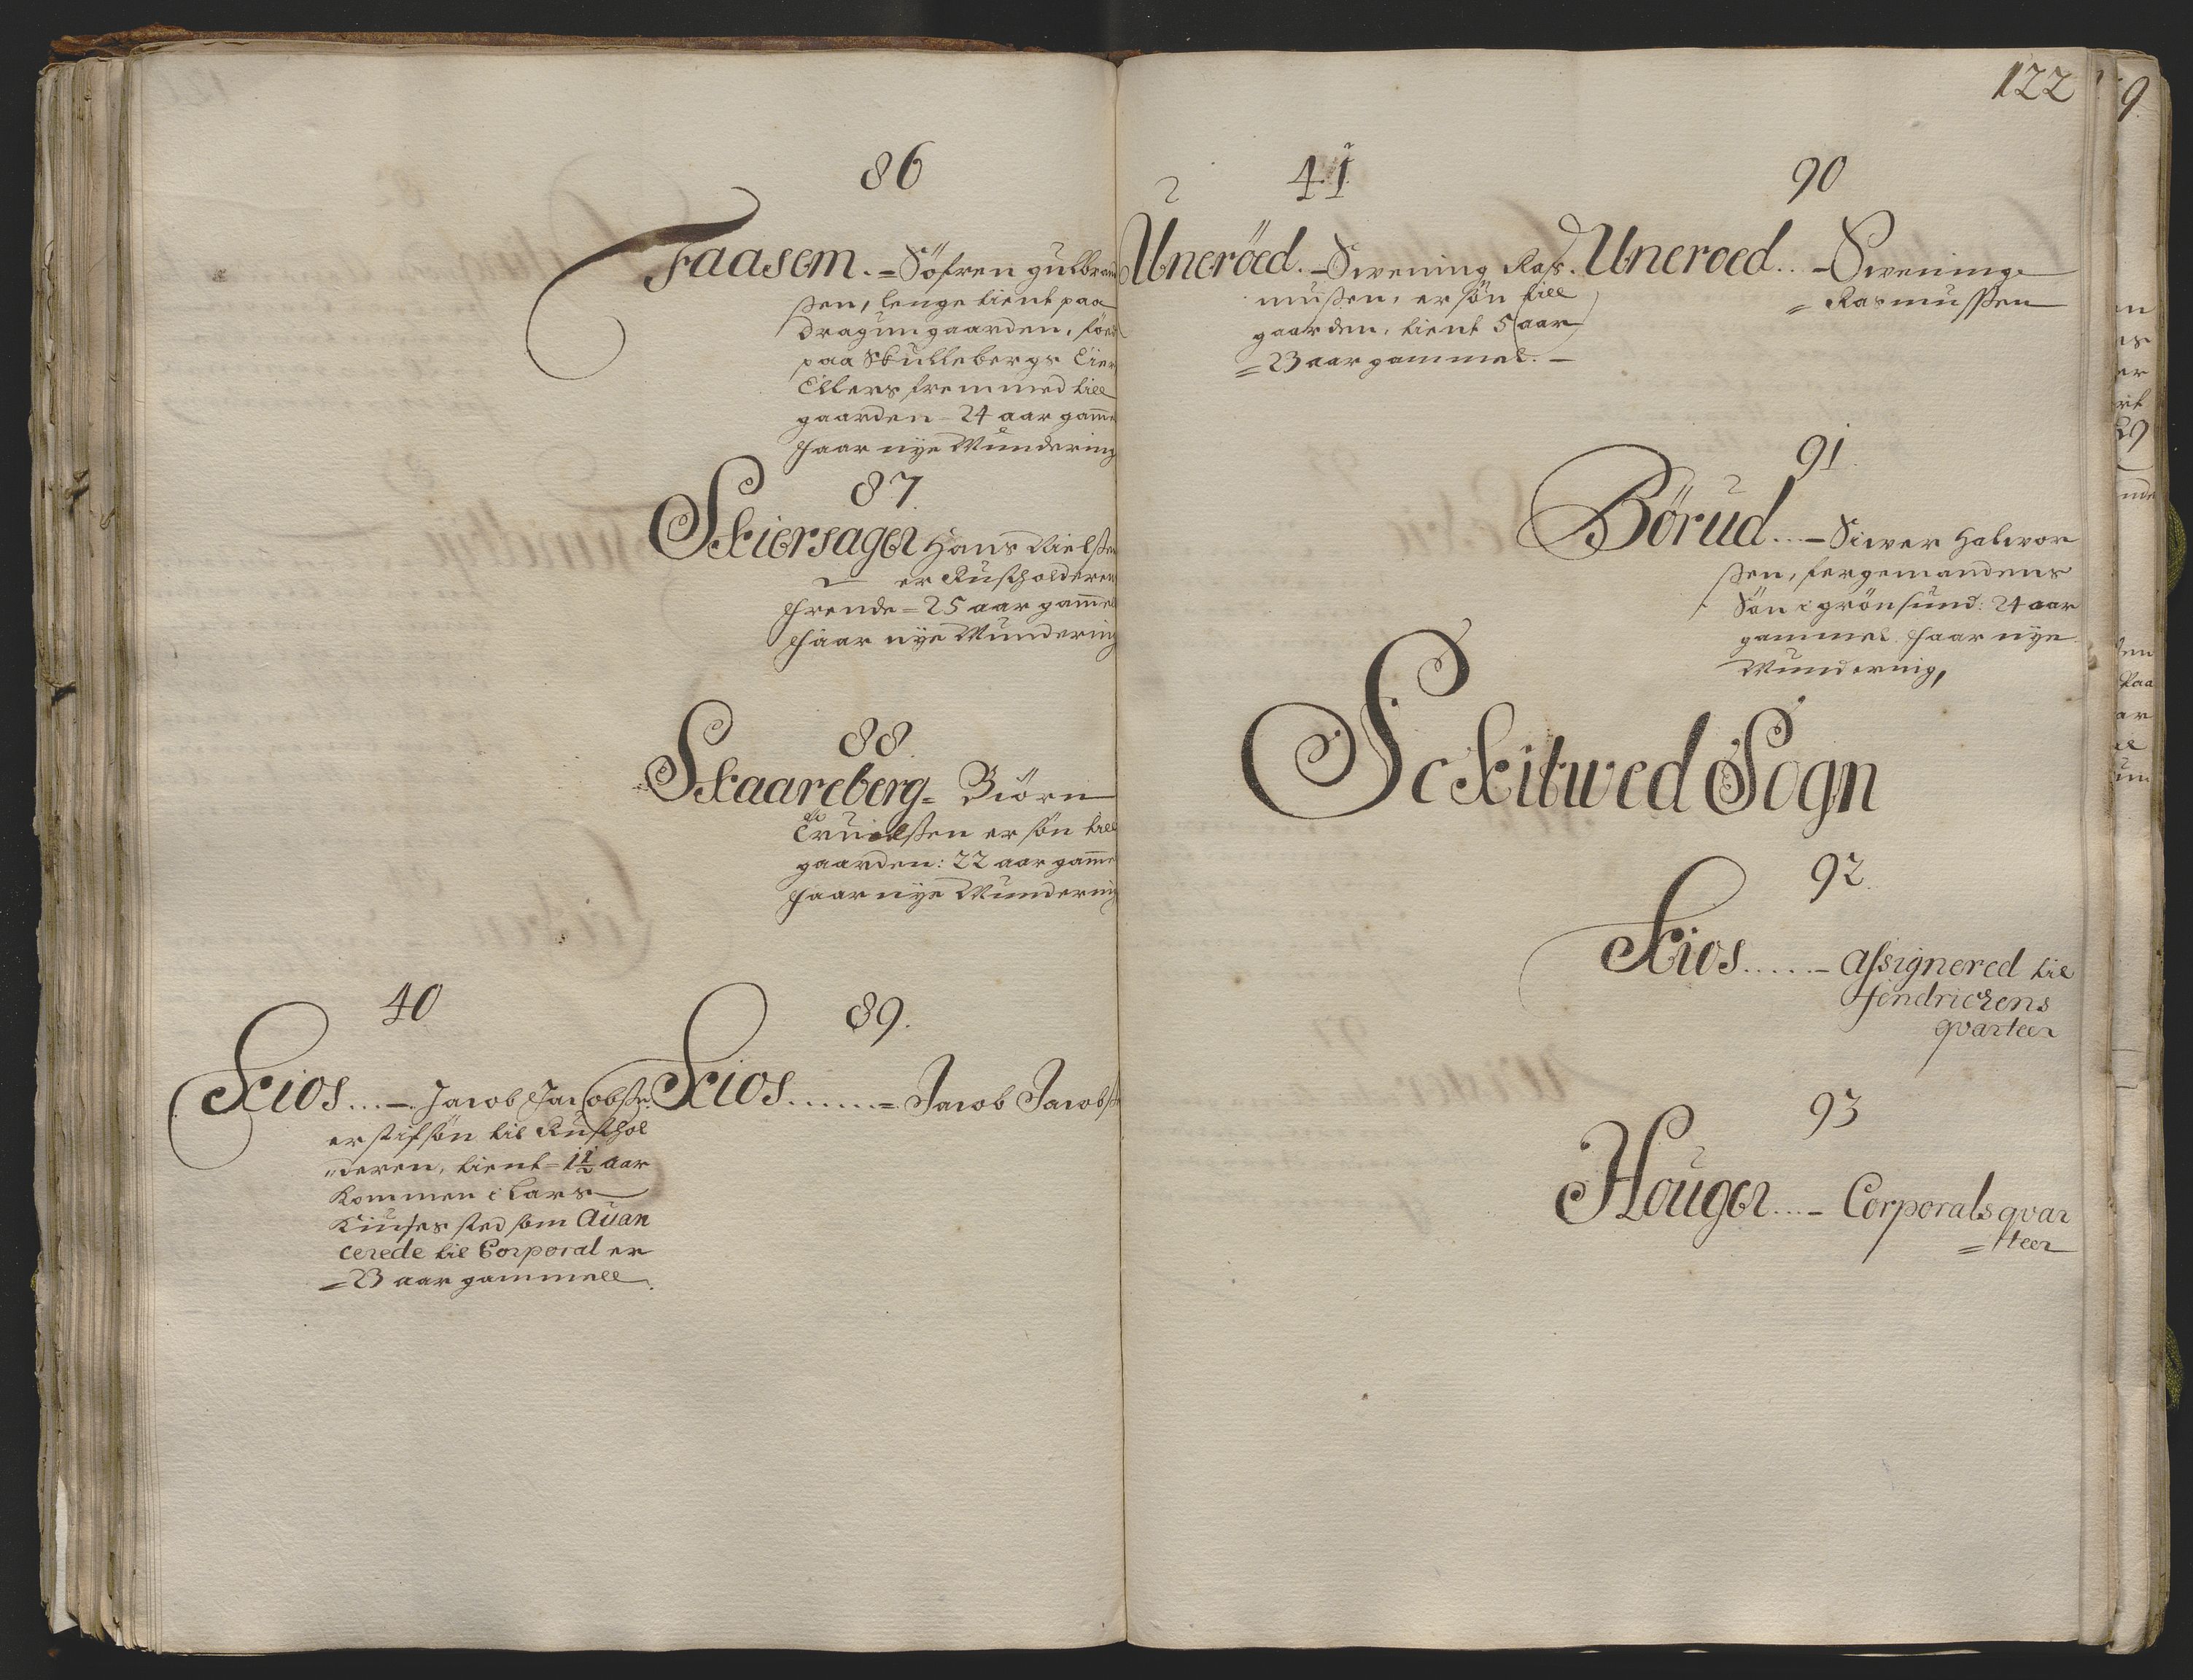 86
Faasem. = Söfren gulbrand
ßen, lenge tient paa
Dragungaarden, föed
paa Skullebergs Eier
Ellers fremmed till
gaarden 24 aar gam̄e
Faar nÿe Mundering
87.
Skiersager Hans Nielßen
er Rustholderens
Frende = 25 aar gam̄el
Faar nÿe Mundering
88.
Skaareberg = Biörn
Truielßen er sön till
gaarden: 22 aar gam̄e
Faar nÿe Mundering
40
Kios...-. Jacob Jacobße.
er stifsön til Rusthol
"deren, tient = 1½ aar
Kommen i Lars
Kiuses sted som Auan
cerede til Corporal er
= 23 aar gammell.
89.
Kios......=. Jacob Jacobß
122
41
Uneröed. - Swening Ras.
mußen, er sön till
gaarden, tient 5 aar
= 23 aar gammel. -
90
Uneroed.. - Swening
= Rasmussen
91.
Börud...- Siwer Halwor
ßen, fergemandens
Sön i grönsund: 24 aar
gammel Faar nÿe
Mundering,
Sckitwed Sogn
92.
Kios.....- assignered til
fendrickens
qvarteer
93
Houger...- Corporals qvar
= teer